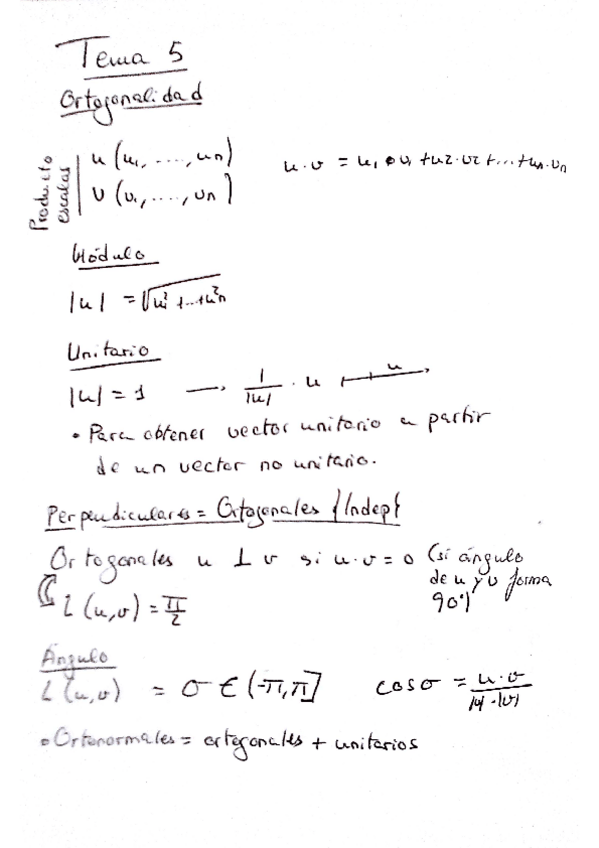 Tema 5
Ortogonalidad
Producto escalar
u (u₁, ...., un)
v (v₁, ...., vn)
u·v = u₁·v₁ + u2·v2 + ... + un·vn
Módulo
|u| = √u₁² + ... + u²n
Unitario
|u| = 1 → 1/|u| · u u
• Para obtener vector unitario a partir
de un vector no unitario.
Perpendiculares = Ortogonales {Indep}
Ortogonales u ⊥ v si u·v = 0 (si ángulo
de u y v forma
90°)
∠(u,v) = π/2
Ángulo
∠(u,v) = σ ∈ (-π,π] cos σ = u·v/|u|·|v|
• Ortonormales = ortogonales + unitarios